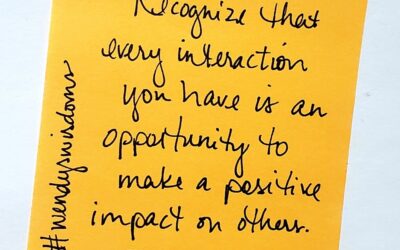 Recognize that
every interaction
you have is an
opportunity to
make a positive
impact on others.
#wendyswisdoms